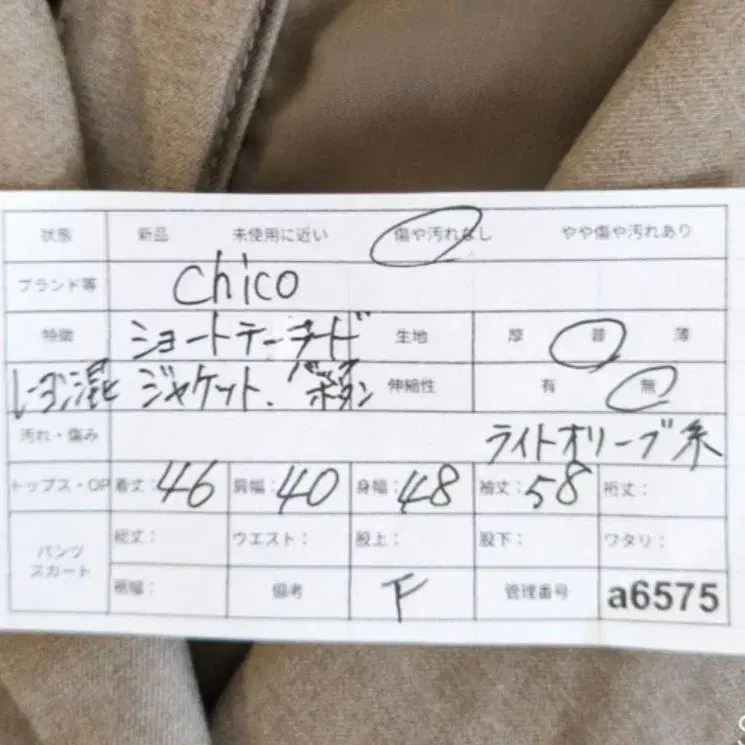 状態 新品 未使用に近い 傷や汚れなし やや傷や汚れあり
ブランド等 chico
特徴 ショートテーラード 生地 厚 普 薄
レーヨン混 ジャケット. バックボタン 伸縮性 有 無
汚れ・傷み ライトオリーブ系
トップス・OP 着丈: 46 肩幅: 40 身幅: 48 袖丈: 58 裄丈:
パンツ スカート 総丈: ウエスト: 股上: 股下: ワタリ:
裾幅: 備考 F 管理番号 a6575